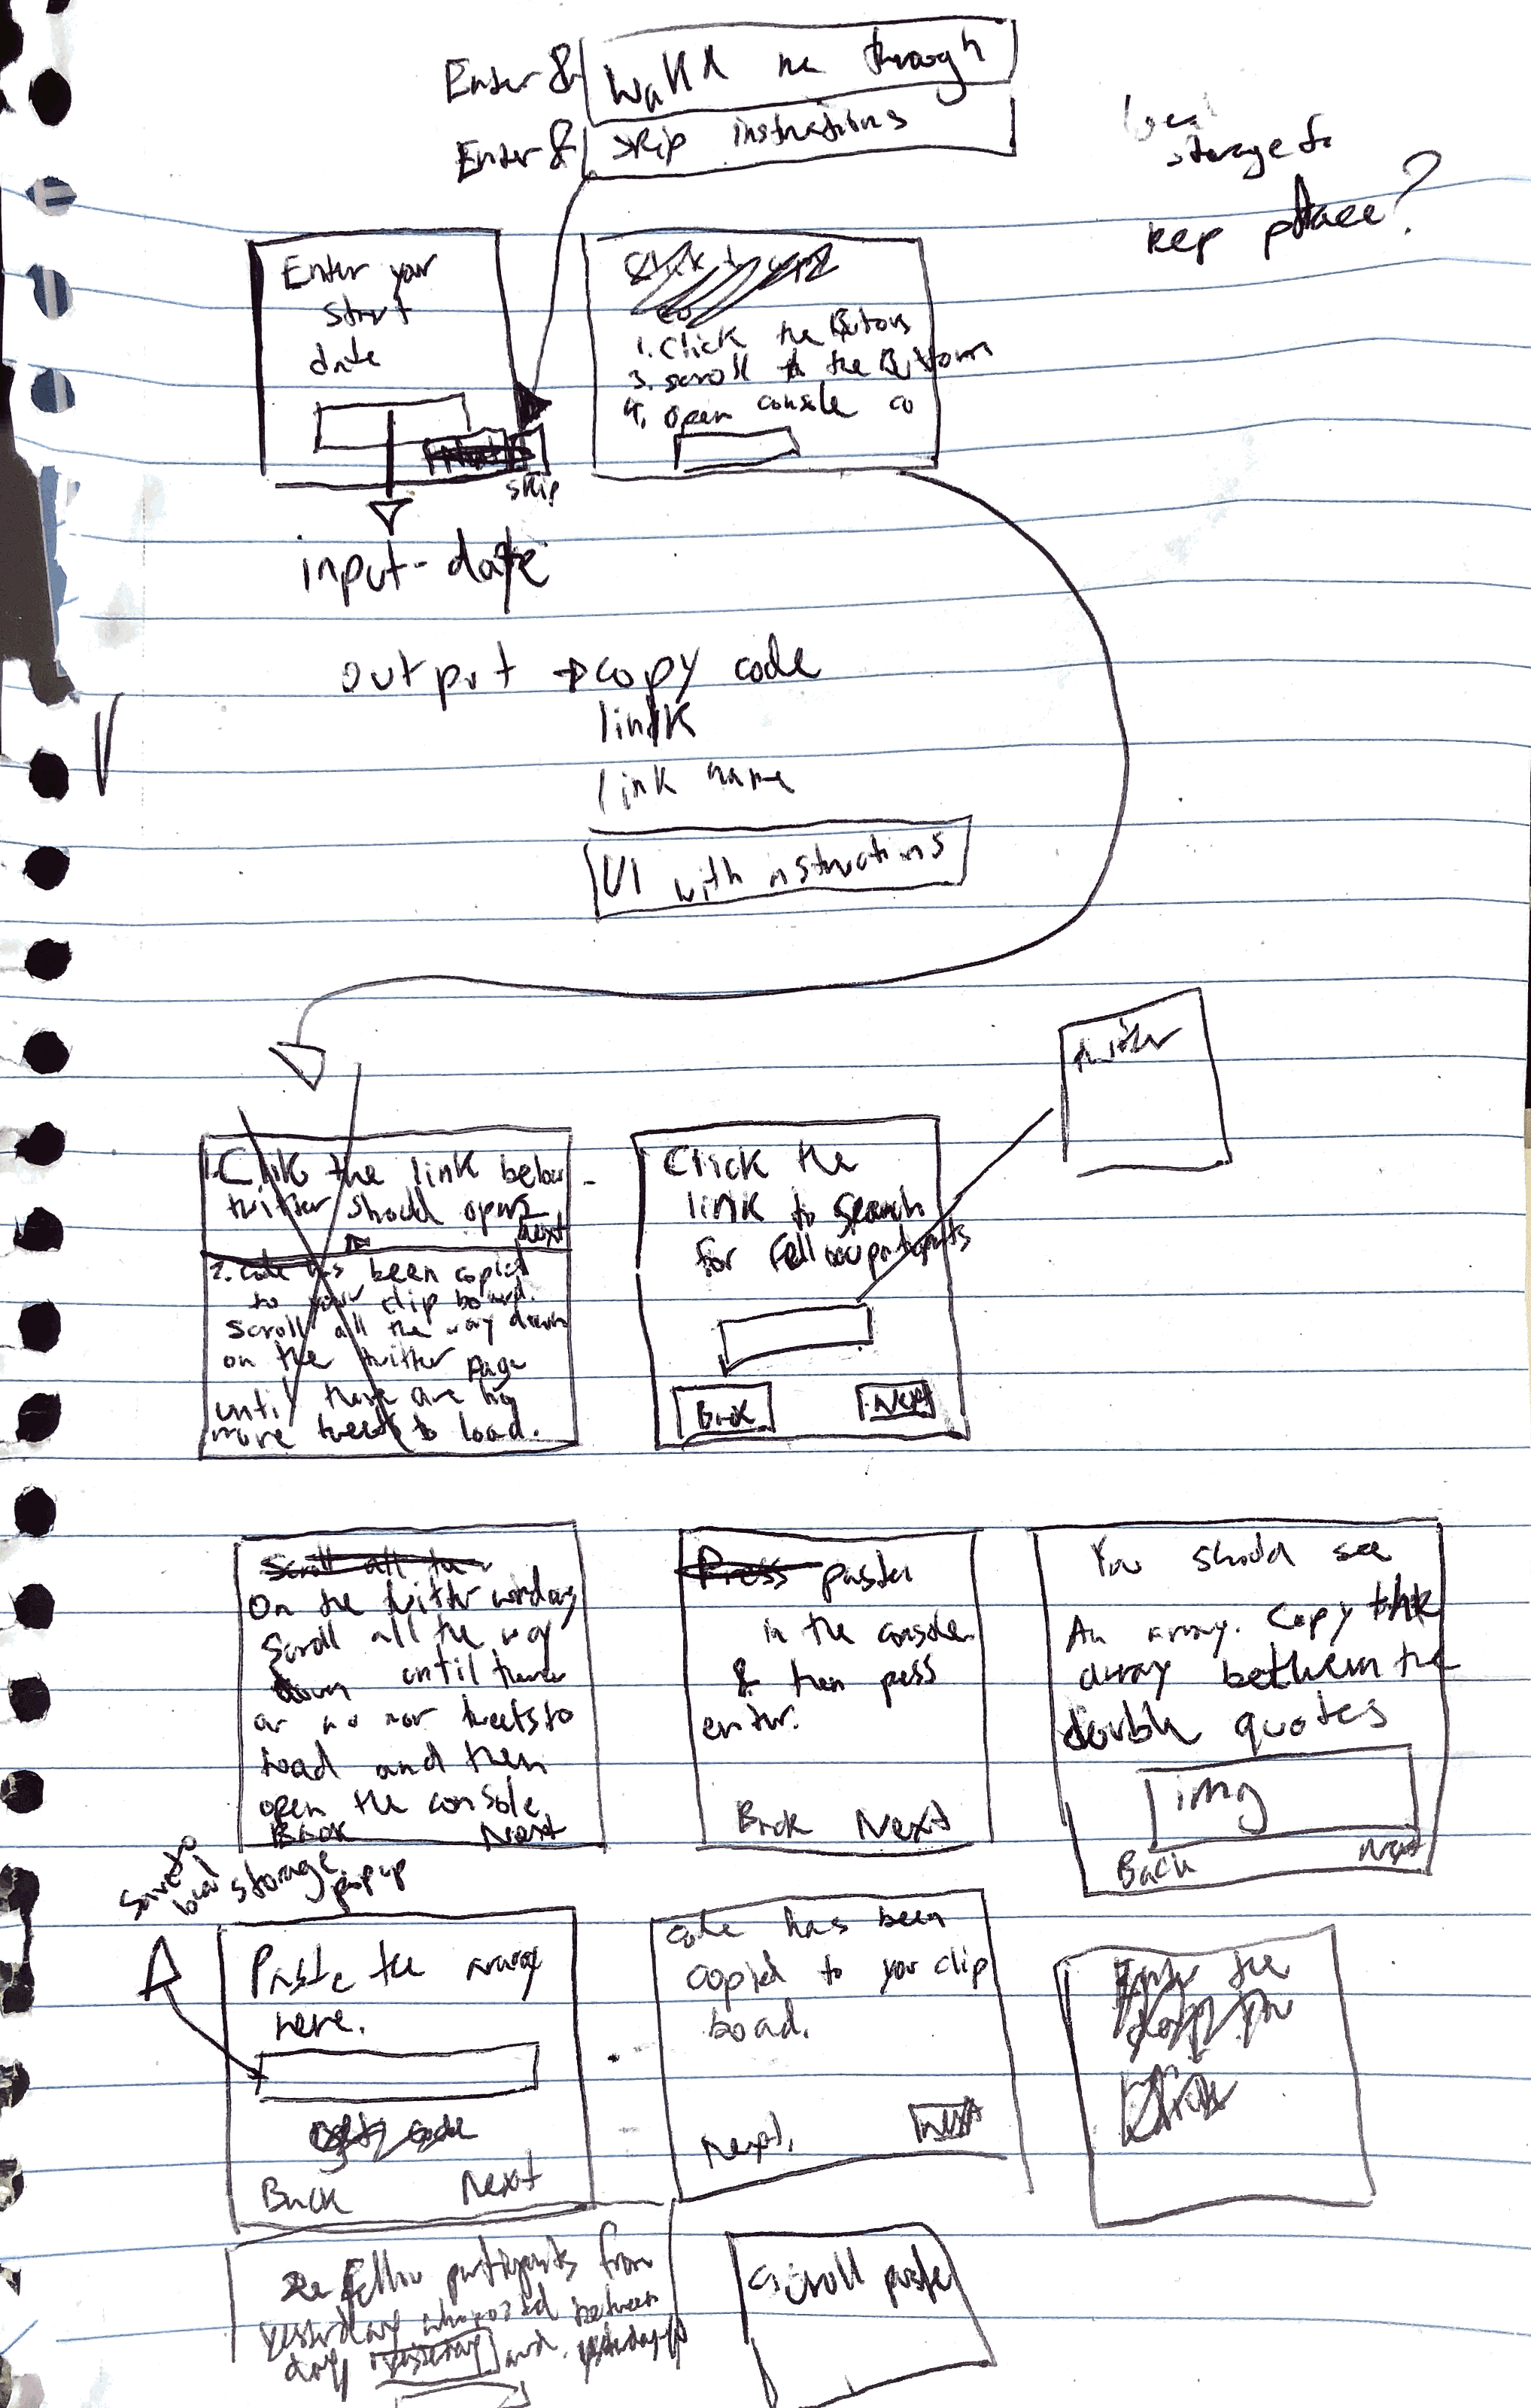 Enter & Walk me through
Enter & skip instructions
local
storage to
keep place?
Enter your
start
date
skip
1. Click the Button
3. scroll to the Bottom
4. open console
input-date
output → copy code
link
link name
UI with instructions
twitter
1. Click the link below
twitter should open
Next
2. code has been copied
to your clip board.
Scroll all the way down
on the twitter page
until there are no
more tweets to load.
Click the
link to search
for Fellow participants
Back Next
Scroll all the
On the twitter window
Scroll all the way
down until there
are no mor tweets to
load and then
open the console
Back Next
Press paste
in the console
& then press
enter.
Back Next
You should see
An array. Copy the
array between the
double quotes
img
Back Next
Save to
local storage
popup
Paste the array
here.
code
Back Next
code has been
copied to your clip
board.
Next. Next
the
Fellow participants from
yesterday who posted between
day yesterday and yesterday
Scroll paste